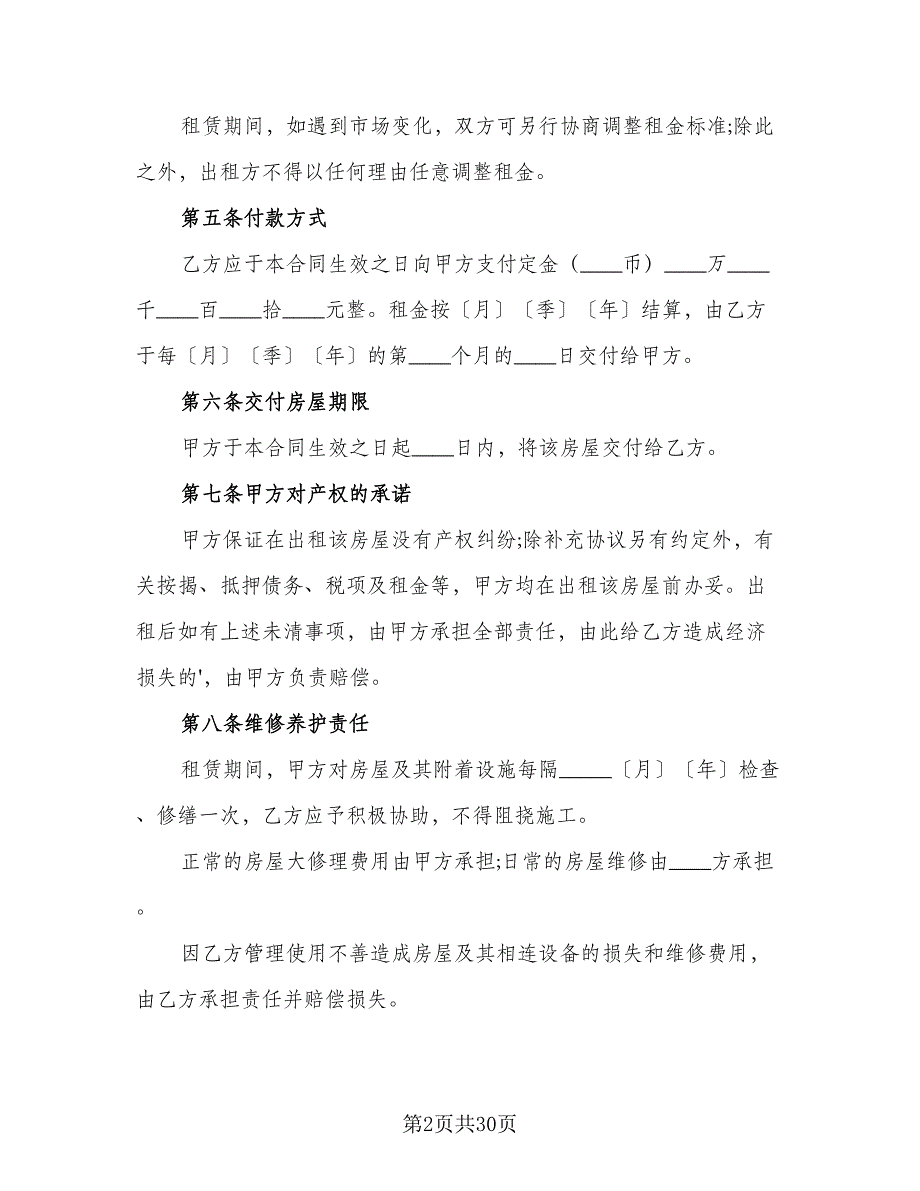 租赁期间，如遇到市场变化，双方可另行协商调整租金标准;除此
之外，出租方不得以任何理由任意调整租金。
第五条付款方式
乙方应于本合同生效之日向甲方支付定金（____币）____万____
千____百____拾____元整。租金按〔月〕〔季〕〔年〕结算，由乙方
于每〔月〕〔季〕〔年〕的第____个月的____日交付给甲方。
第六条交付房屋期限
甲方于本合同生效之日起____日内，将该房屋交付给乙方。
第七条甲方对产权的承诺
甲方保证在出租该房屋没有产权纠纷;除补充协议另有约定外，有
关按揭、抵押债务、税项及租金等，甲方均在出租该房屋前办妥。出
租后如有上述未清事项，由甲方承担全部责任，由此给乙方造成经济
损失的'，由甲方负责赔偿。
第八条维修养护责任
租赁期间，甲方对房屋及其附着设施每隔_____〔月〕〔年〕检查
、修缮一次，乙方应予积极协助，不得阻挠施工。
正常的房屋大修理费用由甲方承担;日常的房屋维修由____方承担
。
因乙方管理使用不善造成房屋及其相连设备的损失和维修费用，
由乙方承担责任并赔偿损失。
第2页共30页